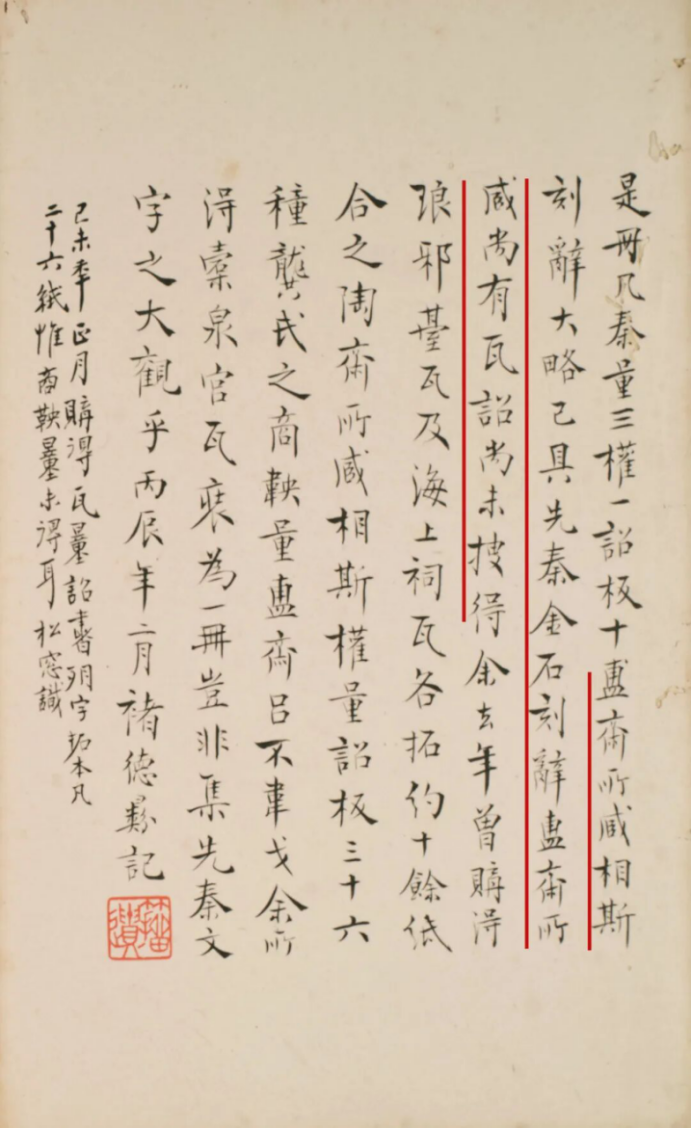 是冊凡秦量三權一詔板十盙齋所臧相斯
刻辭大略已具先秦金石刻辭盙齋所
臧尚有瓦詔尚未搜得余去年曾購得
琅邪臺瓦及海上祠瓦各拓約十餘紙
合之陶齋所臧相斯權量詔板三十六
種龔氏之商鞅量盙齋呂不韋戈余所
得橐泉宮瓦裒為一冊豈非集先秦文
字之大觀乎丙辰年二月褚德彝記
己未秊正月購得瓦量詔書殘字拓本凡
二十六紙惟商鞅量未得耳松窓識